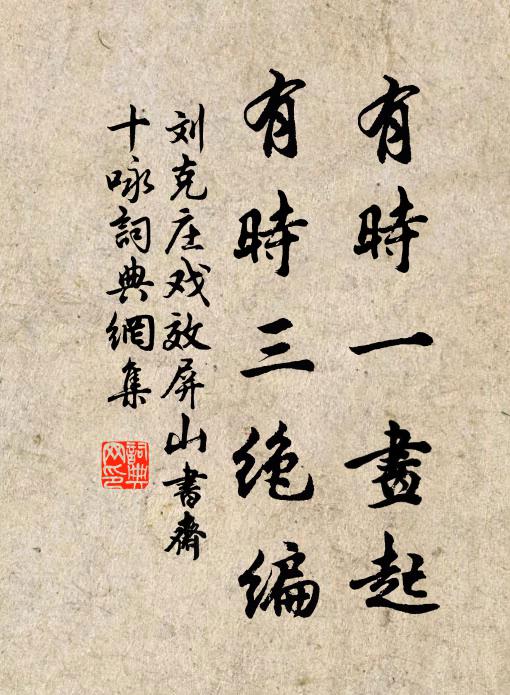 有時一畫起
有時三絶编
刘克庄戏效屏山書齋
十咏詞典網集
詞典网印